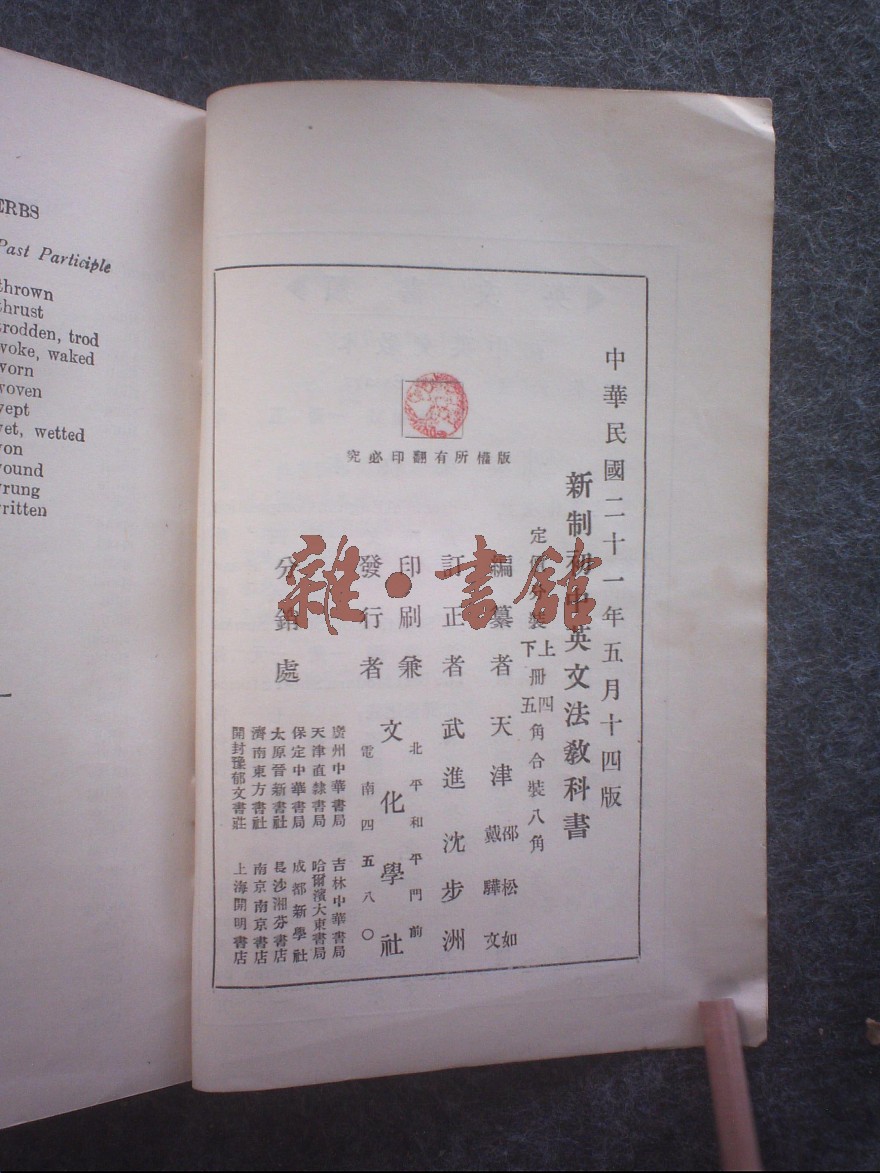 ERBS
Past Participle
thrown
thrust
trodden, trod
woke, waked
worn
woven
wept
wet, wetted
won
wound
wrung
written
中華民國二十一年五月十四版
新制初中英文法教科書
定價分裝上冊四角下冊五角合裝八角
編纂者 天津 邵松如 戴驊文
訂正者 武進 沈步洲
印刷兼發行者 文化學社
北平和平門前
電南四五八〇
分銷處
廣州中華書局 吉林中華書局
天津直隸書局 哈爾濱大東書局
保定中華書局 成都新學社
太原晉新書社 長沙湘芬書店
濟南東方書社 南京南京書店
開封豫郁文書莊 上海開明書店
版權所有翻印必究
雜·書館